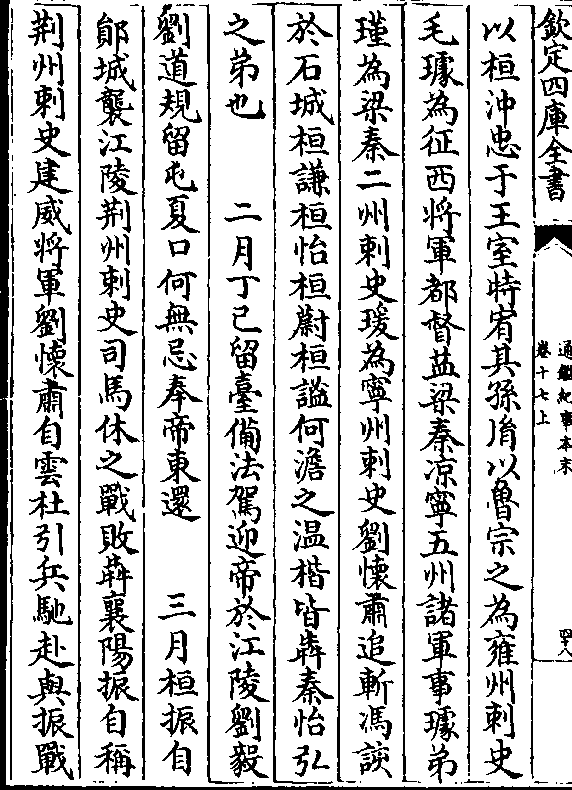 欽定四庫全書
通鑑紀事本末
卷十七上
四十八
以桓沖忠于王室特宥其孫𦙍以魯宗之為雍州刺史
毛璩為征西將軍都督益梁秦凉寧五州諸軍事璩弟
瑾為梁秦二州刺史瑗為寧州刺史劉懷肅追斬馮該
於石城桓謙桓怡桓蔚桓謐何澹之温楷皆犇秦怡弘
之弟也　　二月丁巳留臺備法駕迎帝於江陵劉毅
劉道規留屯夏口何無忌奉帝東還　　三月桓振自
鄖城襲江陵荆州刺史司馬休之戰敗犇襄陽振自稱
荆州刺史建威將軍劉懷肅自雲杜引兵馳赴與振戰